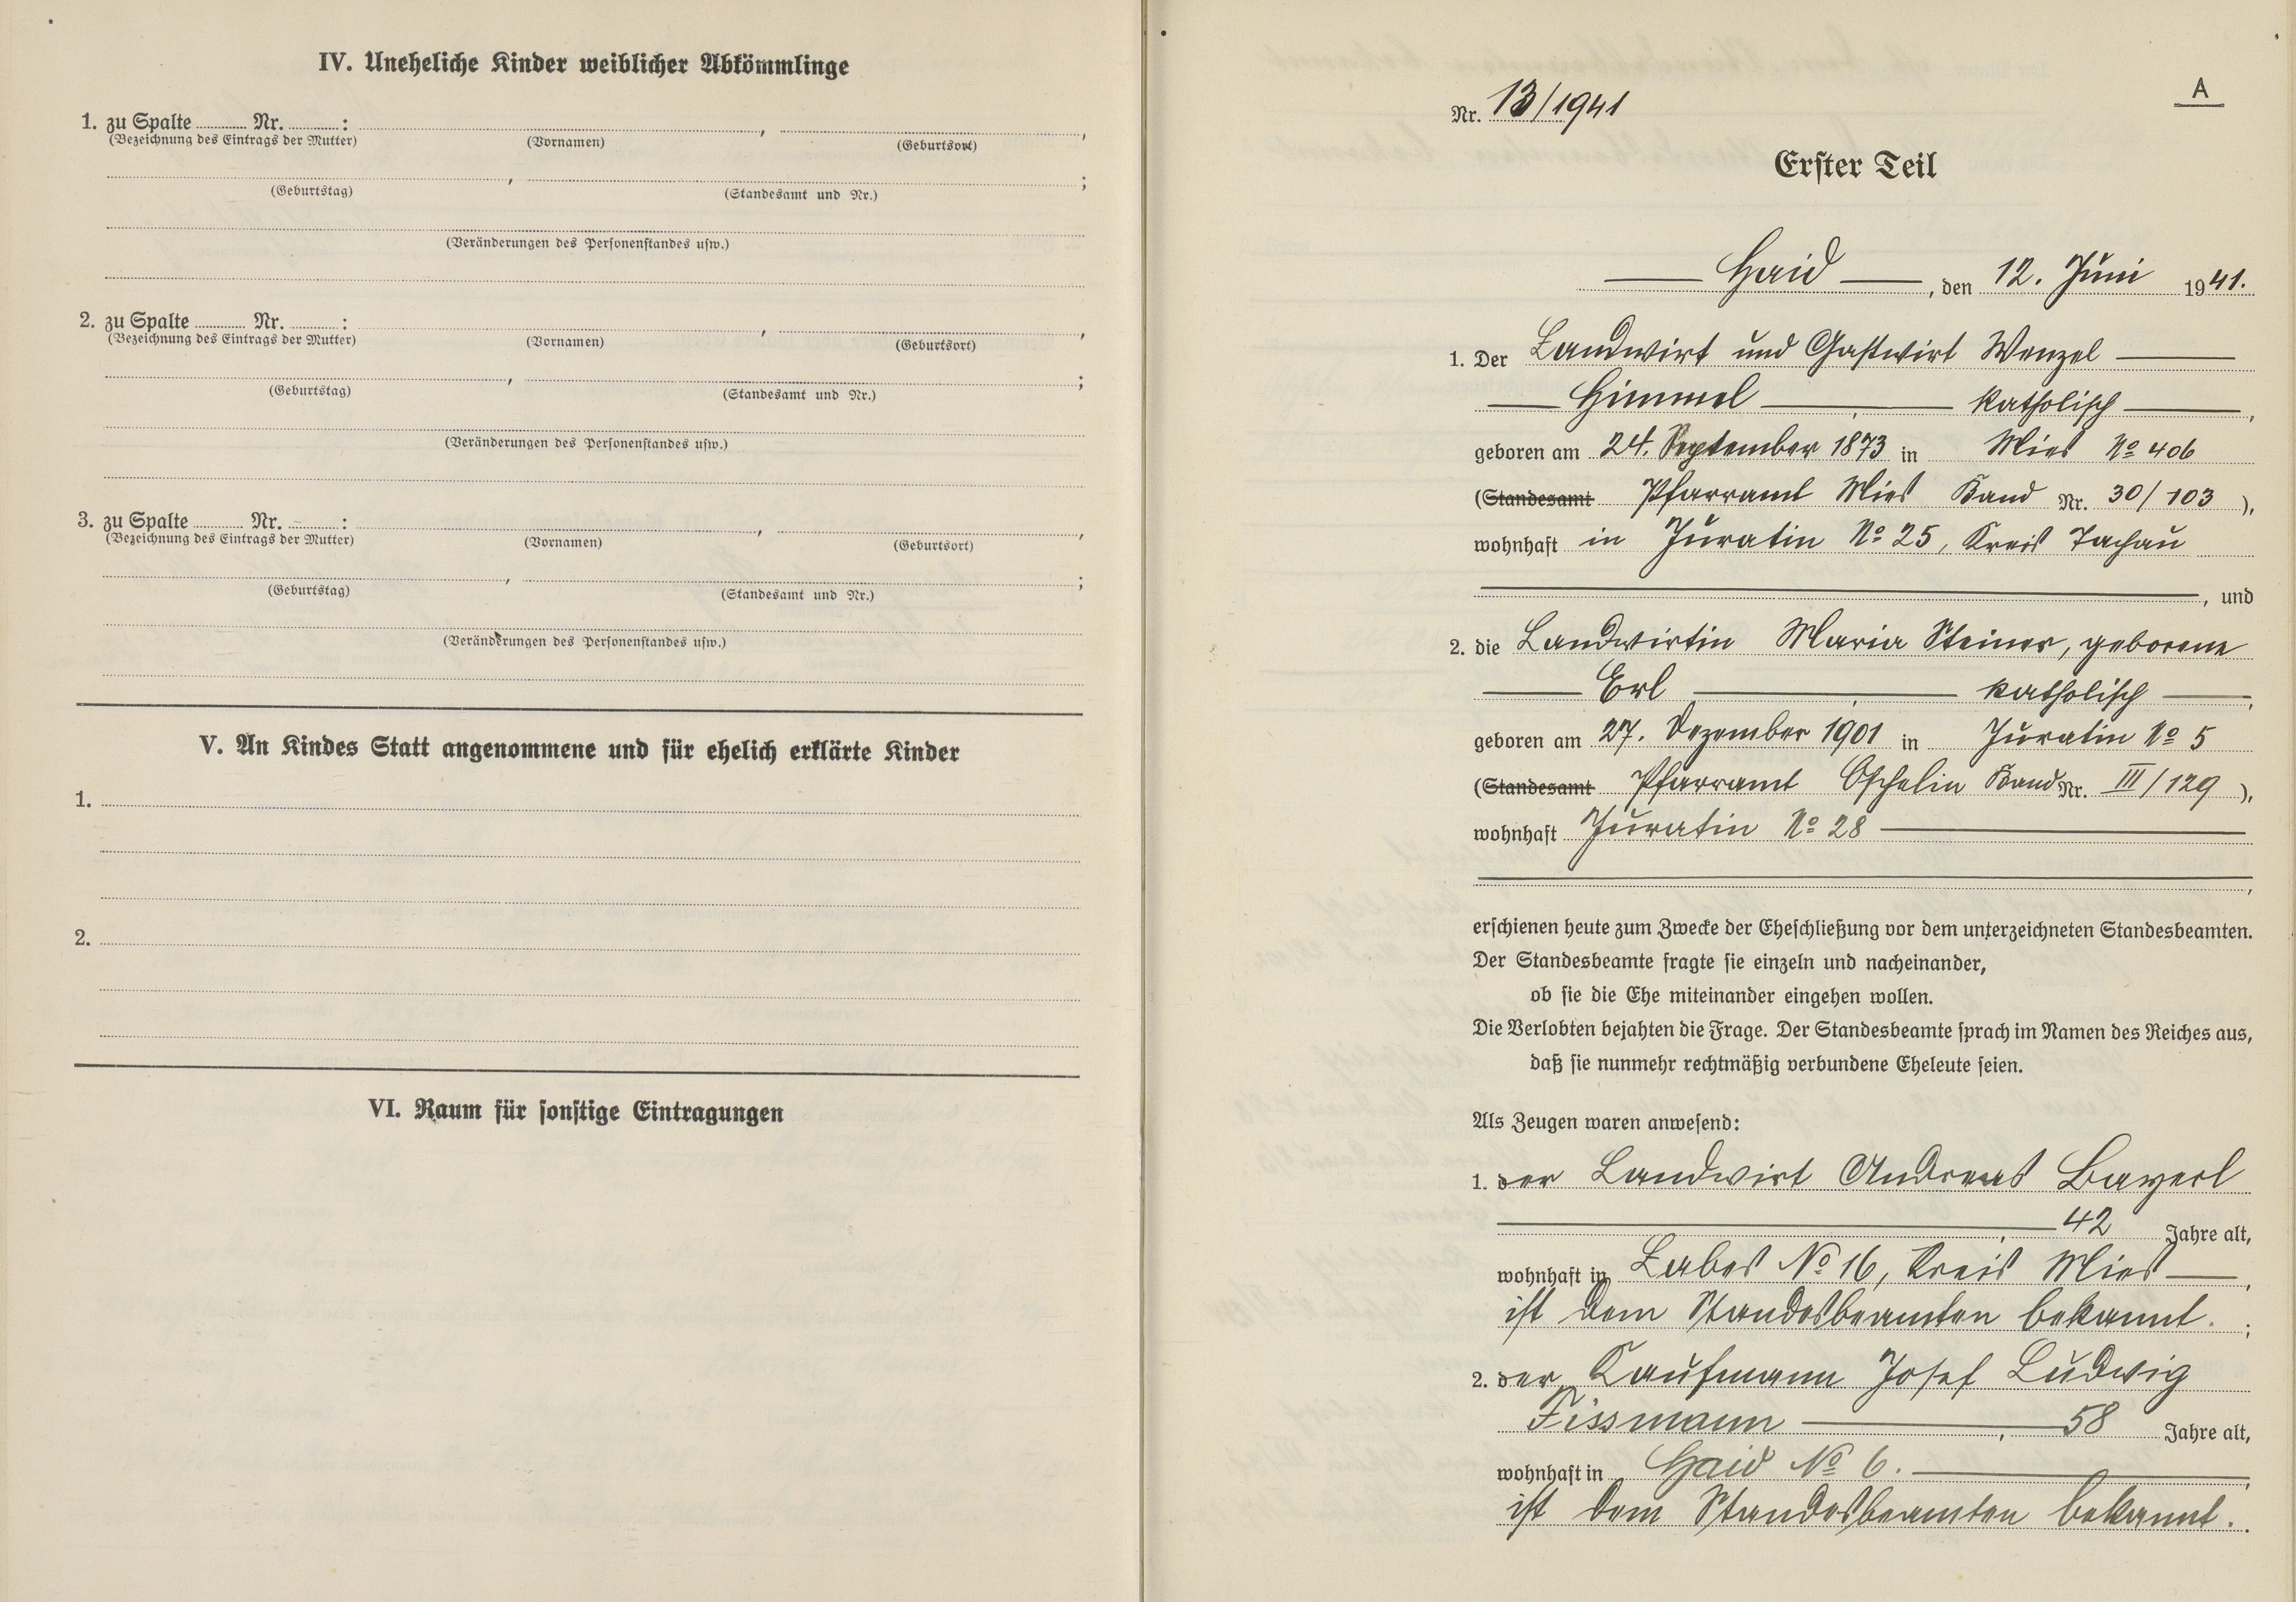 IV. Uneheliche Kinder weiblicher Abkömmlinge
1. zu Spalte ........ Nr. ........ : , ,
(Bezeichnung des Eintrags der Mutter) (Vornamen) (Geburtsort)
, ;
(Geburtstag) (Standesamt und Nr.)
(Veränderungen des Personenstandes usw.)
2. zu Spalte ........ Nr. ........ : , ,
(Bezeichnung des Eintrags der Mutter) (Vornamen) (Geburtsort)
, ;
(Geburtstag) (Standesamt und Nr.)
(Veränderungen des Personenstandes usw.)
3. zu Spalte ........ Nr. ........ : , ,
(Bezeichnung des Eintrags der Mutter) (Vornamen) (Geburtsort)
, ;
(Geburtstag) (Standesamt und Nr.)
(Veränderungen des Personenstandes usw.)
V. An Kindes Statt angenommene und für ehelich erklärte Kinder
1.
2.
VI. Raum für sonstige Eintragungen
A
Nr. 13/1941
Erster Teil
Haid, den 12. Juni 1941.
1. Der Landwirt und Gastwirt Wenzel
Himmel, katholisch,
geboren am 24. September 1873 in Mies No 406
(Standesamt Pfarramt Mies Band Nr. 30/103),
wohnhaft in Juratin No 25, Kreis Tachau
, und
2. die Landwirtin Maria Steiner, geborene
Erl, katholisch,
geboren am 27. Dezember 1901 in Juratin No 5
(Standesamt Pfarramt Oschelin Band Nr. III/129),
wohnhaft Juratin No 28
,
erschienen heute zum Zwecke der Eheschließung vor dem unterzeichneten Standesbeamten.
Der Standesbeamte fragte sie einzeln und nacheinander,
ob sie die Ehe miteinander eingehen wollen.
Die Verlobten bejahten die Frage. Der Standesbeamte sprach im Namen des Reiches aus,
daß sie nunmehr rechtmäßig verbundene Eheleute seien.
Als Zeugen waren anwesend:
1. der Landwirt Andreas Bayerl
, 42 Jahre alt,
wohnhaft in Labes No 16, Kreis Mies,
ist dem Standesbeamten bekannt. ;
2. der Kaufmann Josef Ludwig
Fissmann, 58 Jahre alt,
wohnhaft in Haid No 6. ,
ist dem Standesbeamten bekannt.